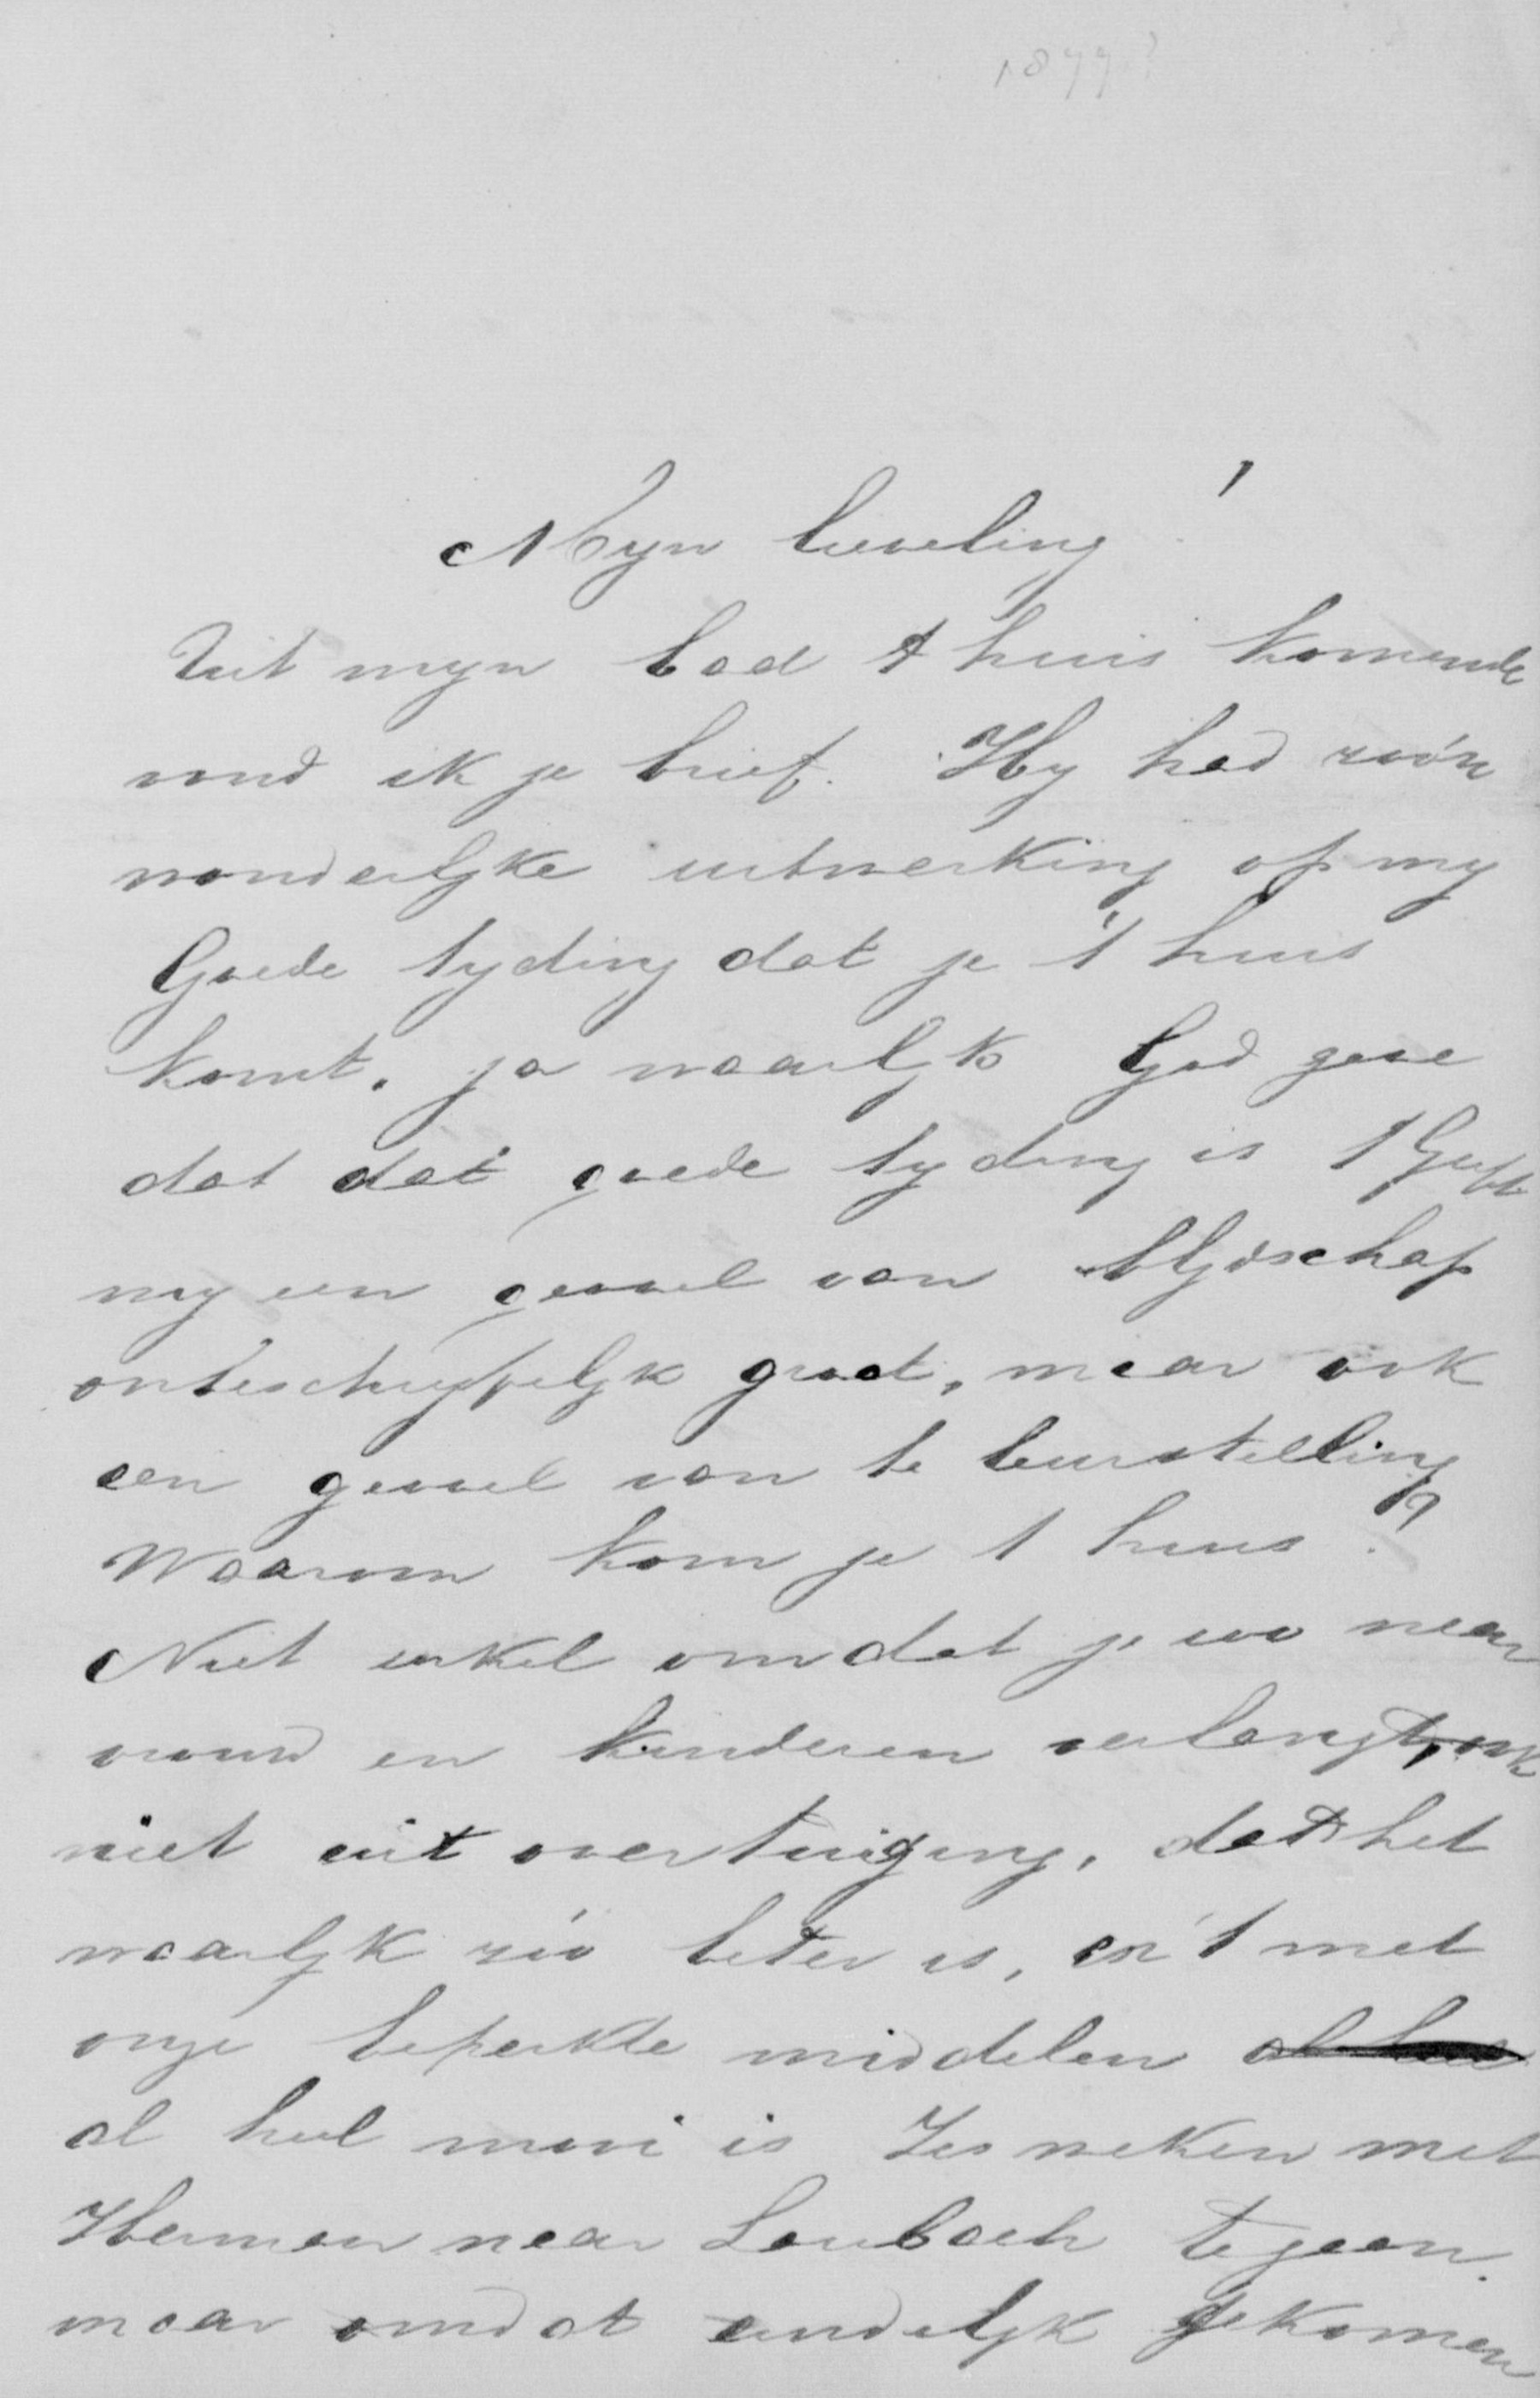 1877?
Myn lieveling!
Uit myn bad t huis komende
vond ik je brief. Hy had zoo'n
wonderlyke uitwerking op my
Goede tyding dat je 't huis
komt. ja waarlyk God geve
dat dat goede tyding is 't Geeft
my een gevoel van blydschap
onbeschryfelyk groot, maar ook
een gevoel van te leurstelling
Waarom kom je t huis?
Niet enkel omdat je zoo naar
vrouw en kinderen verlangt, ook
niet uit overtuiging, dat het
waarlyk zóó beter is, en 't met
onze beperkte middelen
al heel mooi is Zes weken met
Herman naar Laubach te gaan.
maar omdat eindelyk gekomen